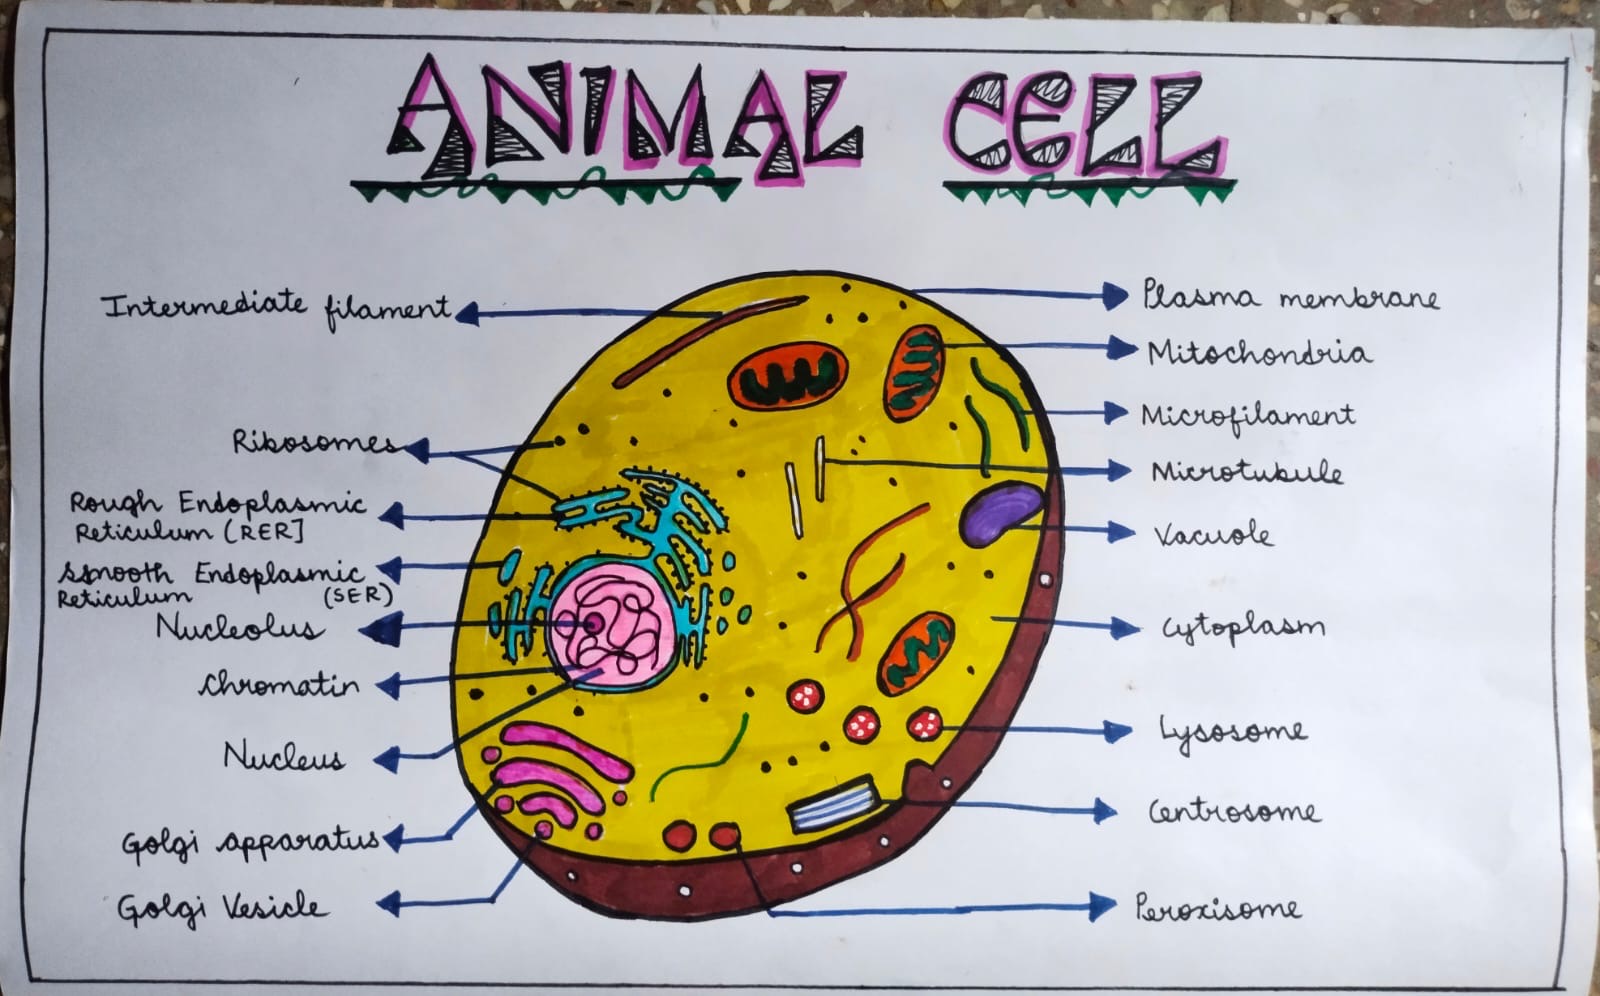 ANIMAL CELL
Intermediate filament
Ribosomes
Rough Endoplasmic
Reticulum (RER]
Smooth Endoplasmic
Reticulum (SER)
Nucleolus
Chromatin
Nucleus
Golgi apparatus
Golgi Vesicle
Plasma membrane
Mitochondria
Microfilament
Microtubule
Vacuole
Cytoplasm
Lysosome
Centrosome
Peroxisome